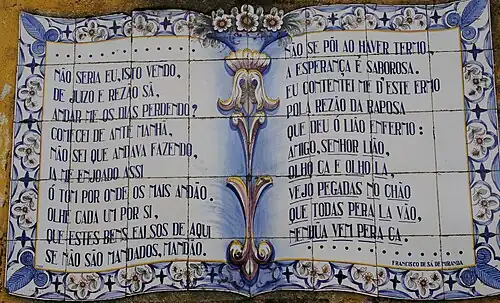 NÃO SERIA EU, ISTO VENDO,
DE JUIZO E REZÃO SÃ,
ANDAR-ME OS DIAS PERDENDO?
COMECEI DE ANTE MANHÃ,
NÃO SEI QUE ANDAVA FAZENDO,
JA ME ENJOADO ASSI
Ó TOM POR ONDE OS MAIS ANDÃO.
OLHE CADA UM POR SI,
QUE ESTES BENS FALSOS DE AQUI
SE NÃO SÃO MANDADOS, MANDÃO.
NÃO SE PÔI AO HAVER TERMO,
A ESPERANÇA É SABOROSA.
EU CONTENTEI ME D'ESTE ERMO
POLA REZÃO DA RAPOSA
QUE DEU Ó LIÃO ENFERMO:
AMIGO, SENHOR LIÃO,
OLHO CA E OLHO LA,
VEJO PEGADAS NO CHÃO
QUE TODAS PERA LA VÃO,
NENHŨA VEM PERA CA.
FRANCISCO DE SÁ DE MIRANDA